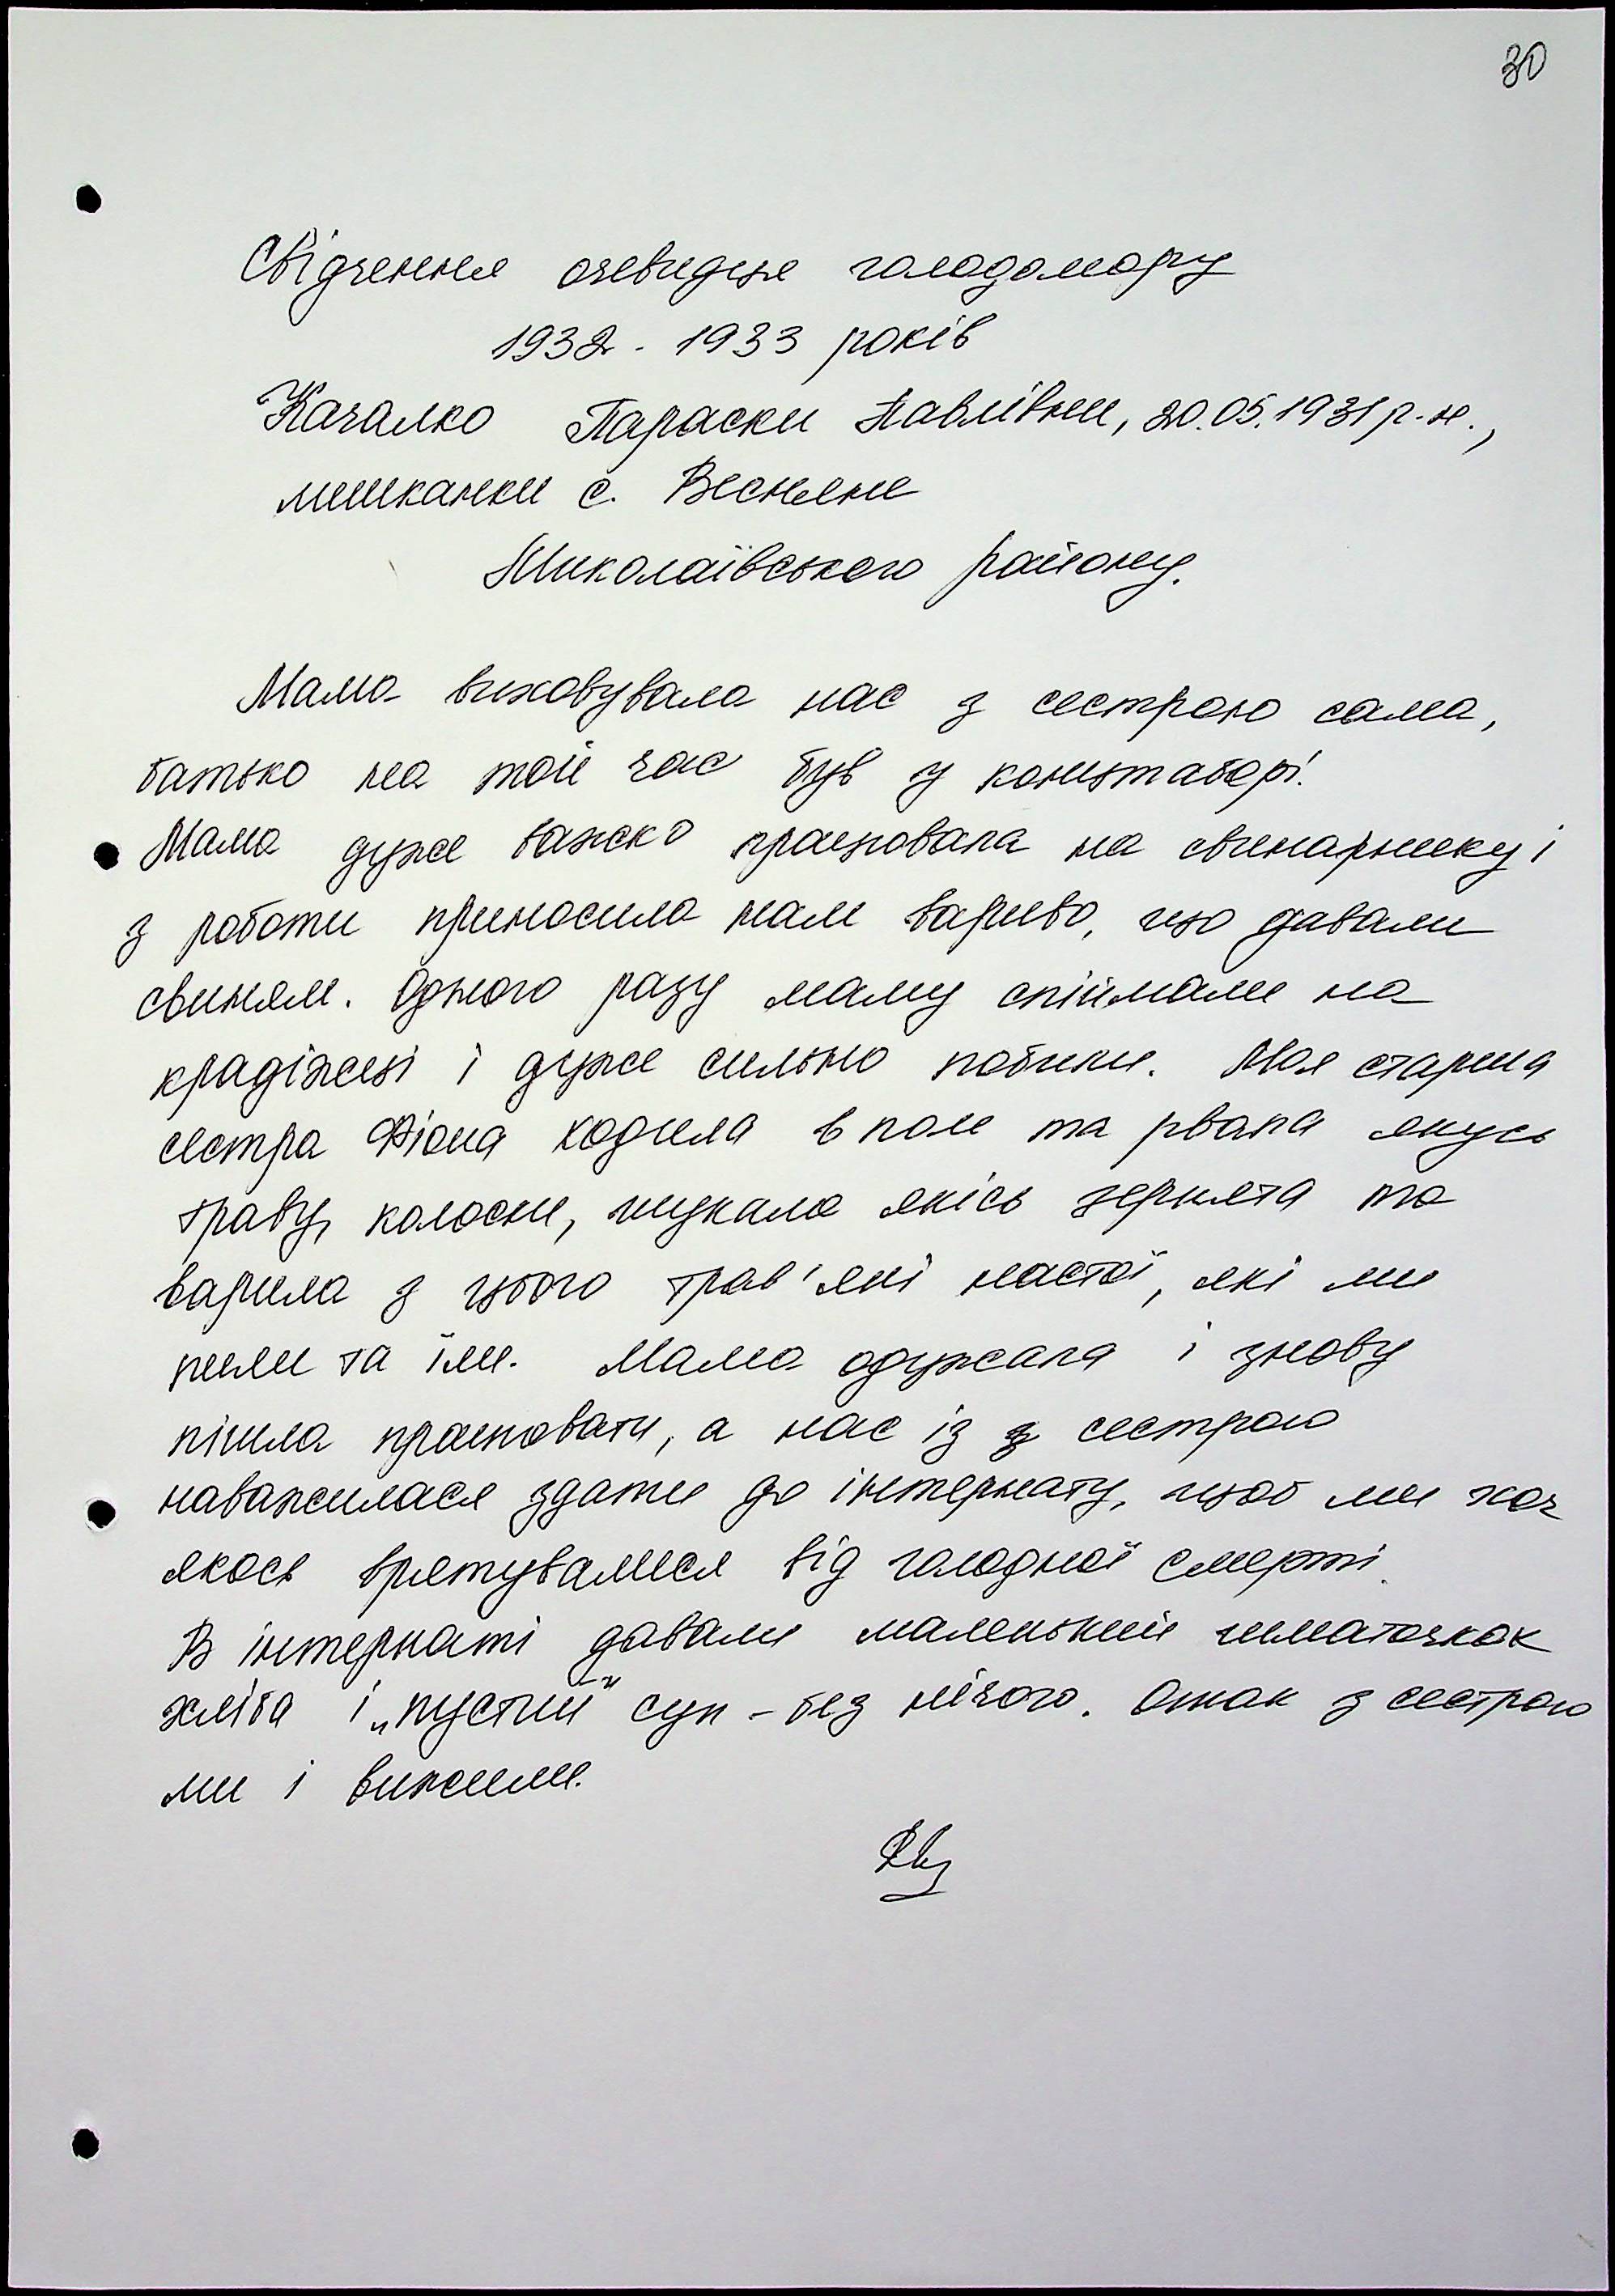 30
Свідчення очевидця голодомору
1932 - 1933 років
Качалко Параски Павлівни, 20.05.1931 р.н.,
мешканки с. Весняне
Миколаївського району.
Мама виховувала нас з сестрою сама,
батько на той час був у концтаборі.
Мама дуже важко працювала на свинарнику і
з роботи приносила нам вариво, що давали
свиням. Одного разу маму спіймали на
крадіжці і дуже сильно побили. Моя старша
сестра Фіона ходила в поле та рвала якусь
траву, колоски, шукала якісь зернята та
варила з цього трав'яні настої, які ми
пили та їли. Мама одужала і знову
пішла працювати, а нас із з сестрою
наважилася здати до інтернату, щоб ми хоч
якось врятувалися від голодної смерті.
В інтернаті давали маленький шматочкок
хліба і „пустий" суп - без нічого. Отак з сестрою
ми і вижили.